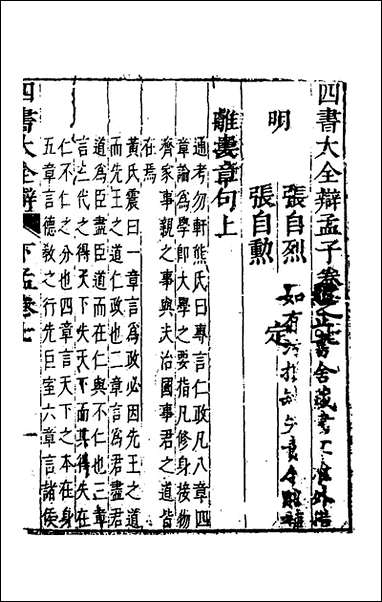 四書大全辯孟子卷之七
正書舍藏書不准外借
如有污損缺少責令賠補
明
張自烈
張自勲
定
離婁章句上
通考勿軒熊氏曰專言仁政凡八章四
章論為學即大學之要指凡修身接物
齊家事親之事與夫治國事君之道皆
在焉
黃氏震曰一章言為政必因先王之道
而先王之道仁政也二章言為君盡君
道為臣盡臣道而在仁與不仁也三章
言三代之得天下失天下而其得失在
仁不仁之分也四章言天下之本在身
五章言德敎之行先臣室六章言諸侯
四書大全辯
下孟卷七
一